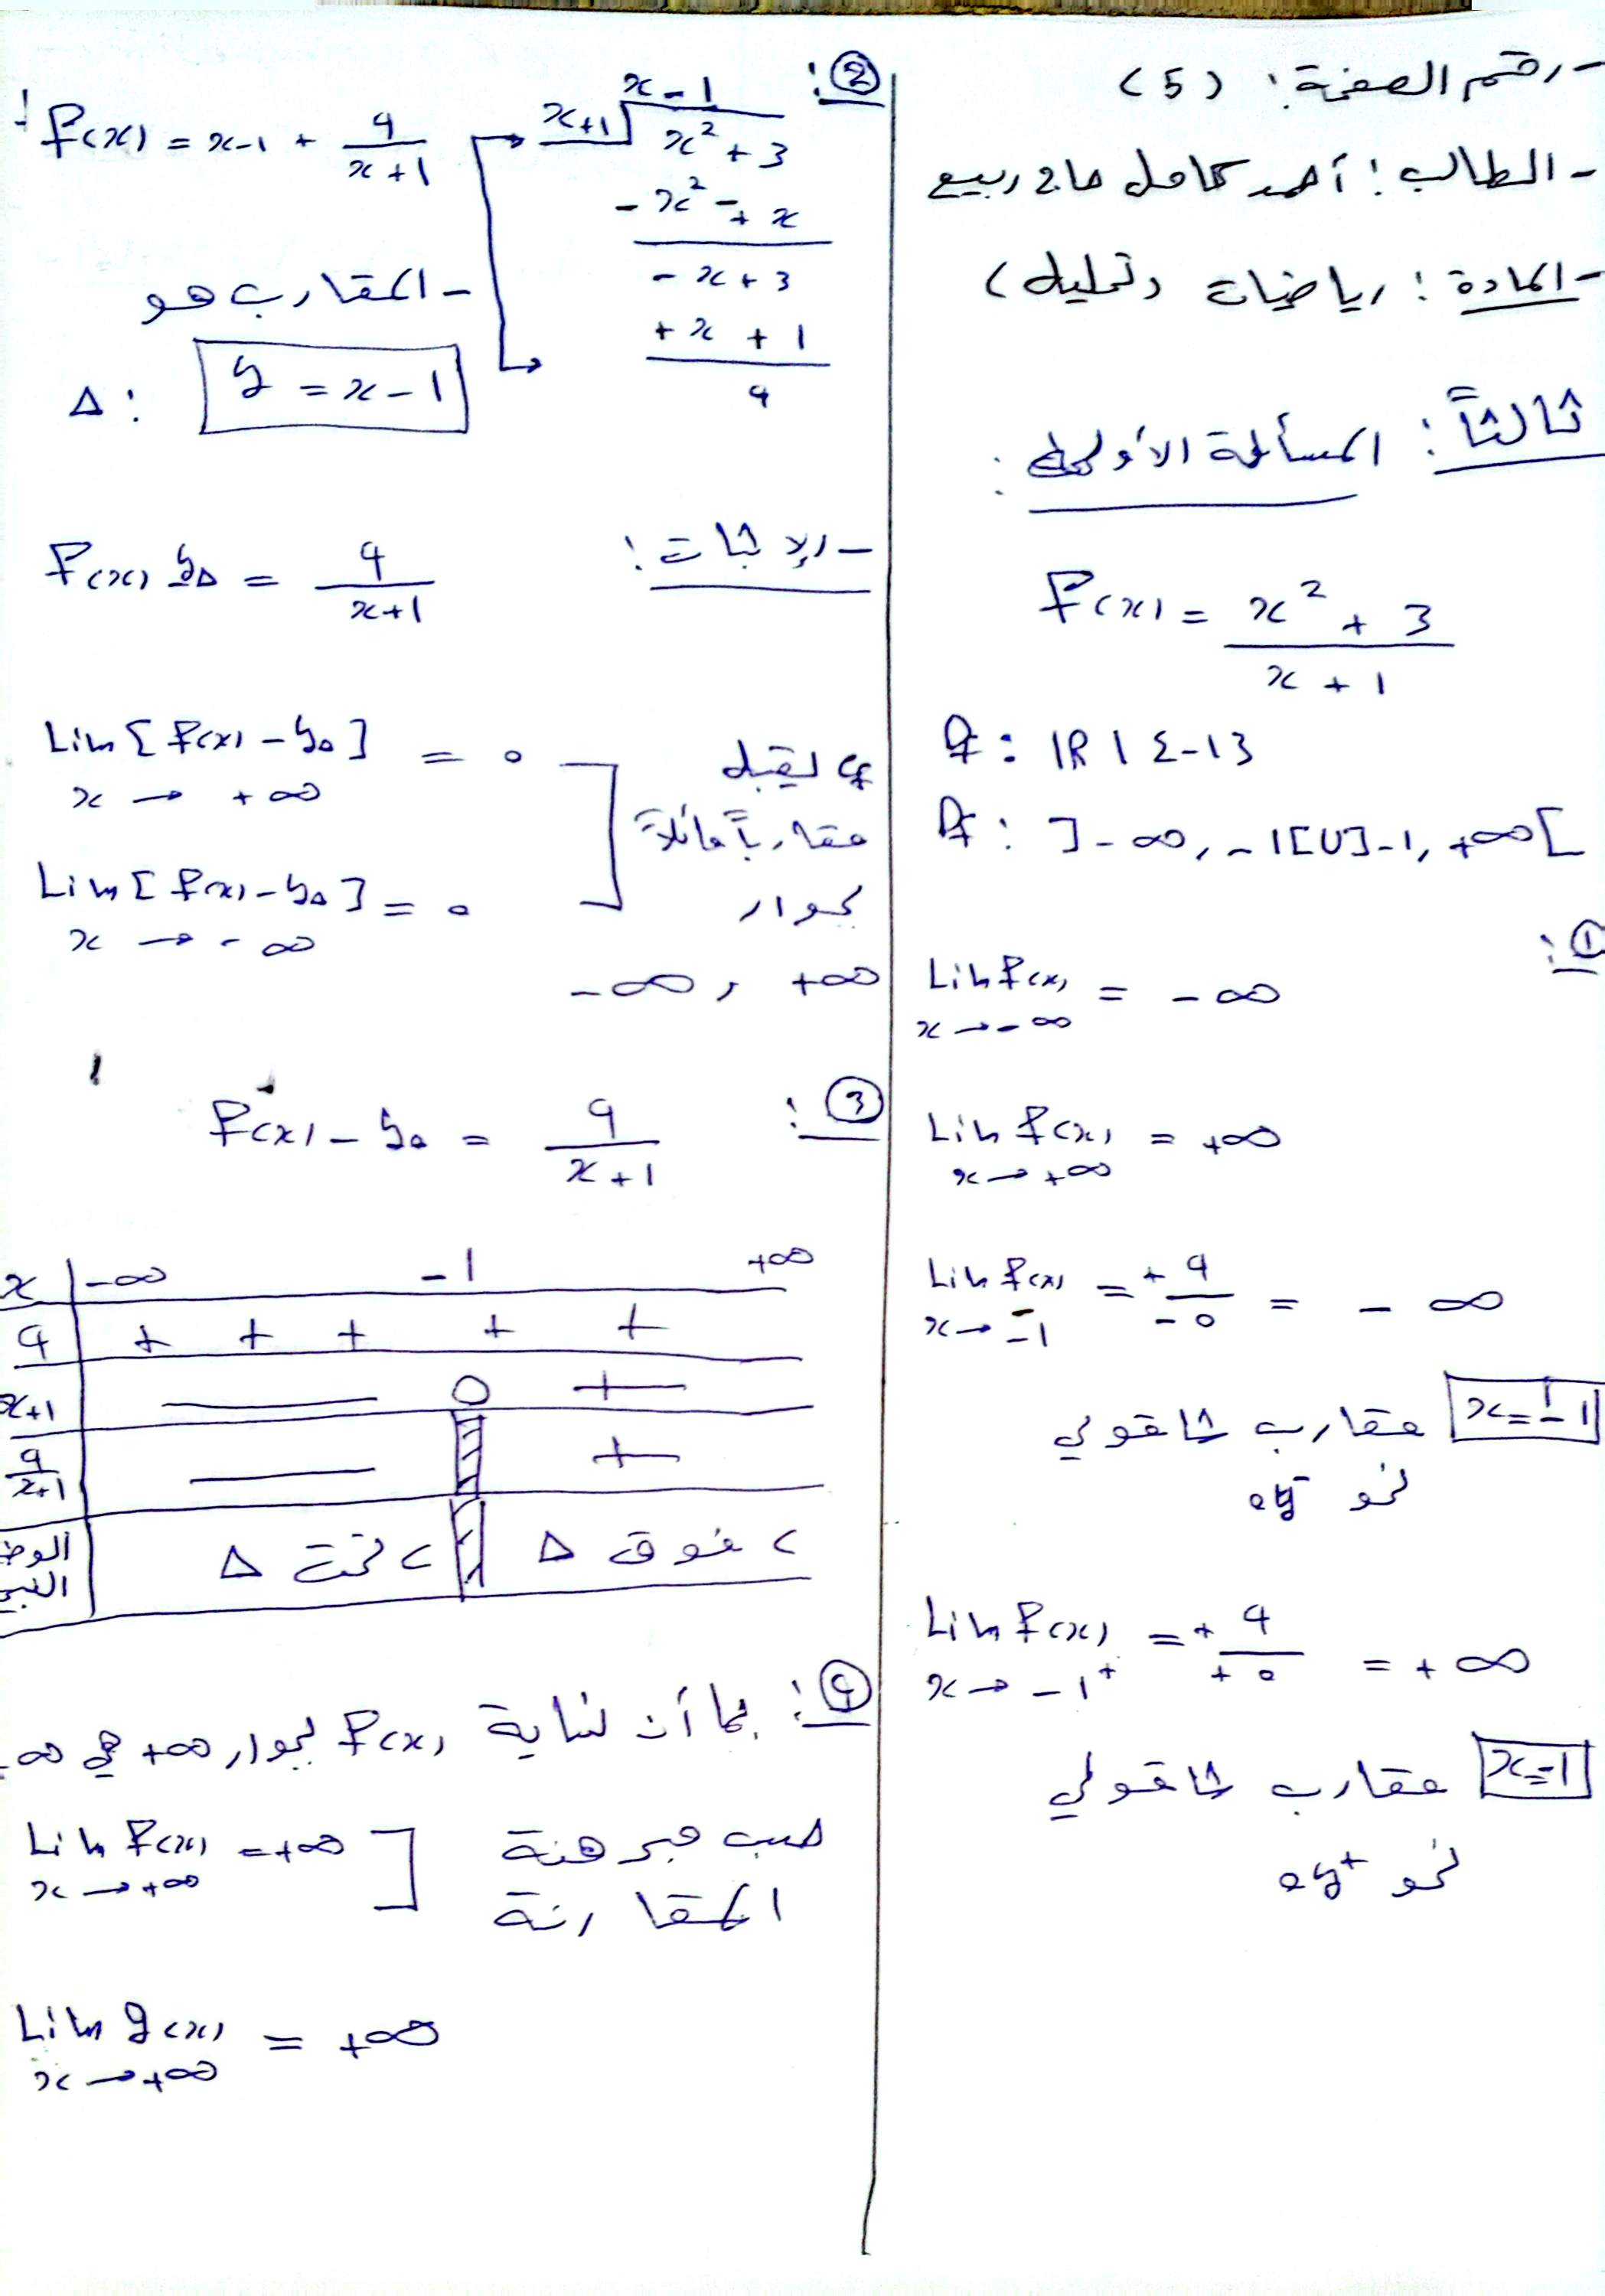 - رقم الصفحة: (5)
- الطالب: أحمد كامل حاج ربيع
- المادة: رياضيات (تحليل)
ثالثاً: المسألة الأولى:
f(x) = \frac{x^2 + 3}{x + 1}
Df: IR \ {-1}
Df: ]-∞, -1[U]-1, +∞[
①:
Lim f(x) = -∞
x → -∞
Lim f(x) = +∞
x → +∞
Lim f(x) = \frac{+4}{-0} = -∞
x → -1⁻
x = -1 مقارب شاقولي
نحو oy⁻
Lim f(x) = \frac{+4}{+0} = +∞
x → -1⁺
x = -1 مقارب شاقولي
نحو oy⁺
②:
x - 1
x+1 x² + 3
- x² -+ x
- x + 3
+ x + 1
4
f(x) = x-1 + \frac{4}{x+1}
- المقارب هو
Δ: y = x - 1
- الإثبات:
f(x) yΔ = \frac{4}{x+1}
Lim [f(x) - yΔ] = 0
x → +∞
Lim [f(x) - yΔ] = 0
x → -∞
يقبل
مقارباً مائلاً
بجوار
+∞ , -∞
③:
f(x) - yΔ = \frac{4}{x+1}
x -∞ -1 +∞
4 + + + + +
x+1 — 0 +
\frac{4}{x+1} — +
الوض النسبي C تحت Δ C فوق Δ
④: بما أن نهاية f(x) بجوار +∞ هي ∞
Lim f(x) = +∞
x → +∞
حسب مبرهنة
المقارنة
Lim g(x) = +∞
x → +∞